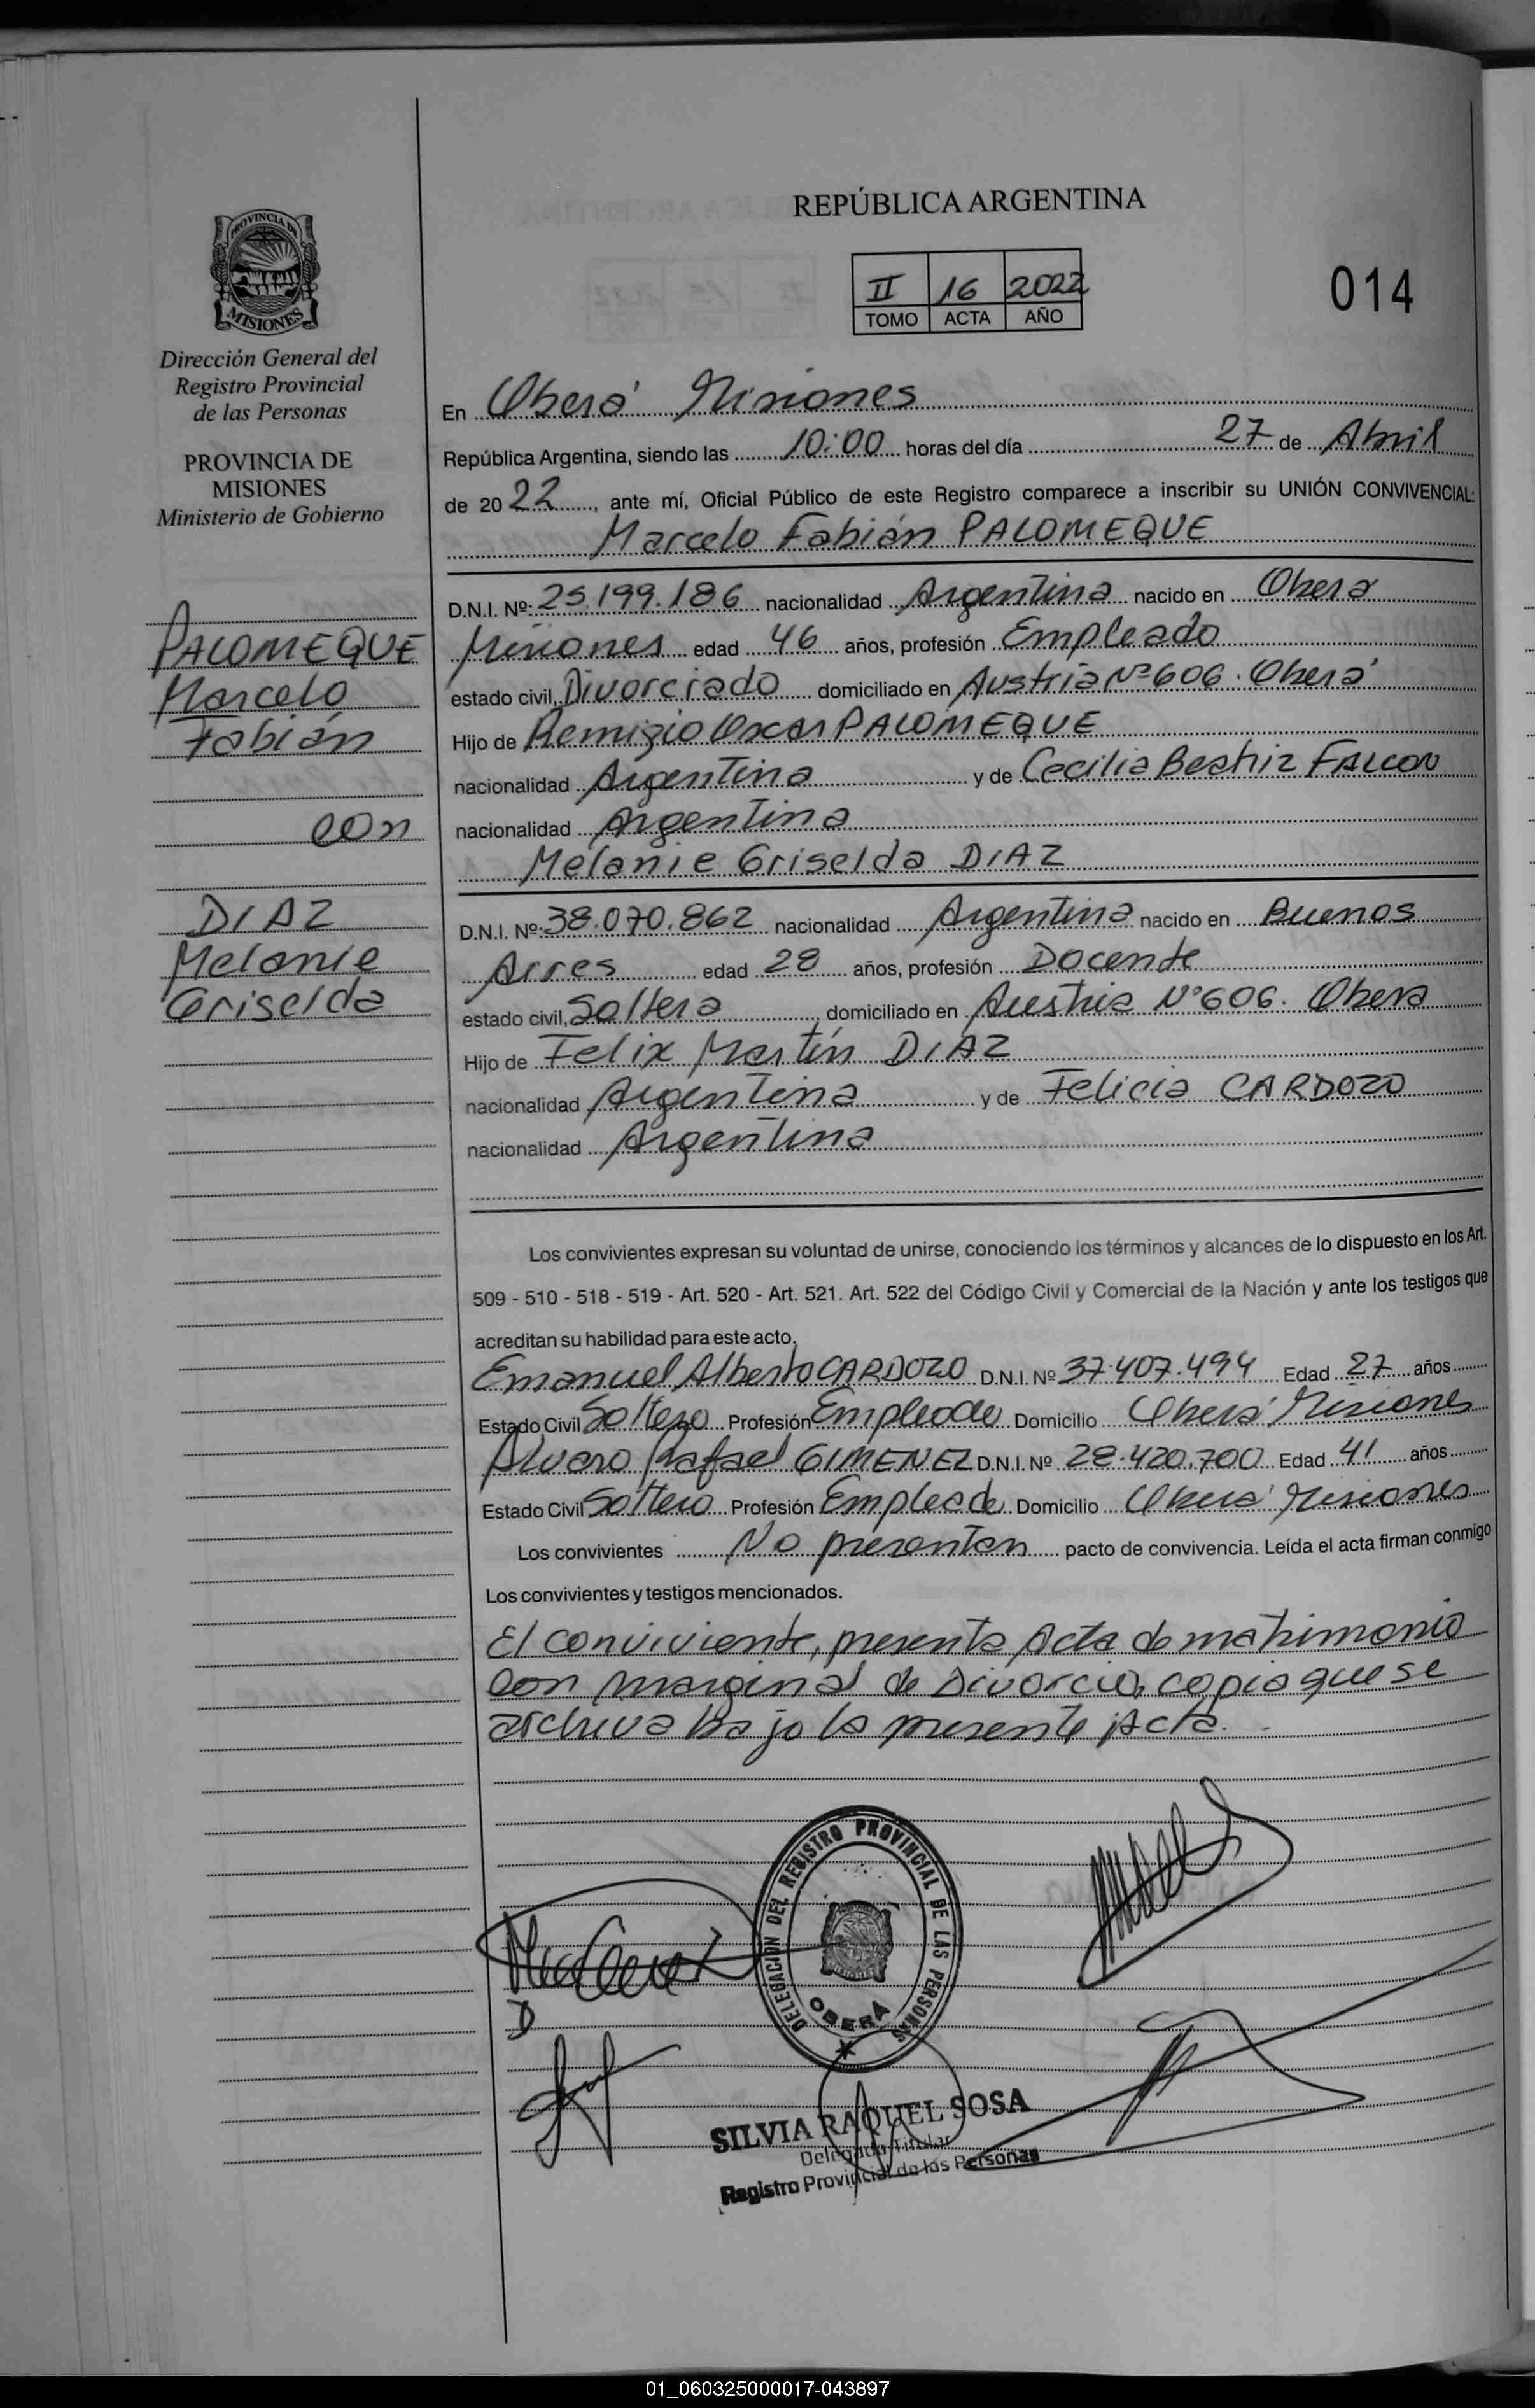 REPÚBLICA ARGENTINA
II 16 2022
TOMO ACTA AÑO
014
PROVINCIA DE
MISIONES
Dirección General del
Registro Provincial
de las Personas
PROVINCIA DE
MISIONES
Ministerio de Gobierno
PALOMEQUE
Marcelo
Fabián
con
DIAZ
Melanie
Griselda
En Oberá Misiones
República Argentina, siendo las 10:00 horas del día 27 de Abril
de 2022, ante mí, Oficial Público de este Registro comparece a inscribir su UNIÓN CONVIVENCIAL:
Marcelo Fabián PALOMEQUE
D.N.I. Nº: 25.199.186 nacionalidad Argentina nacido en Obera
Misiones edad 46 años, profesión Empleado
estado civil, Divorciado domiciliado en Austria Nº 606. Oberá
Hijo de Remigio Oscar PALOMEQUE
nacionalidad Argentina y de Cecilia Beatriz FALCON
nacionalidad Argentina
Melanie Griselda DIAZ
D.N.I. Nº: 38.070.862 nacionalidad Argentina nacido en Buenos
Aires edad 28 años, profesión Docente
estado civil, Soltera domiciliado en Austria Nº 606. Obera
Hijo de Felix Martín DIAZ
nacionalidad Argentina y de Felicia CARDOZO
nacionalidad Argentina
Los convivientes expresan su voluntad de unirse, conociendo los términos y alcances de lo dispuesto en los Art.
509 - 510 - 518 - 519 - Art. 520 - Art. 521. Art. 522 del Código Civil y Comercial de la Nación y ante los testigos que
acreditan su habilidad para este acto.
Emanuel Alberto CARDOZO D.N.I. Nº 37.407.494 Edad 27 años
Estado Civil Soltero Profesión Empleado Domicilio Oberá Misiones
Alvaro Rafael GIMENEZ D.N.I. Nº 28.420.700 Edad 41 años
Estado Civil Soltero Profesión Empleado Domicilio Oberá Misiones
Los convivientes No presentan pacto de convivencia. Leída el acta firman conmigo
Los convivientes y testigos mencionados.
El conviviente, presenta Acta de matrimonio
con marginal de Divorcio, copia que se
archiva bajo la presente Acta.
DELEGACIÓN DEL REGISTRO PROVINCIAL DE LAS PERSONAS
OBERÁ
SILVIA RAQUEL SOSA
Delegada Titular
Registro Provincial de las Personas
01_060325000017-043897